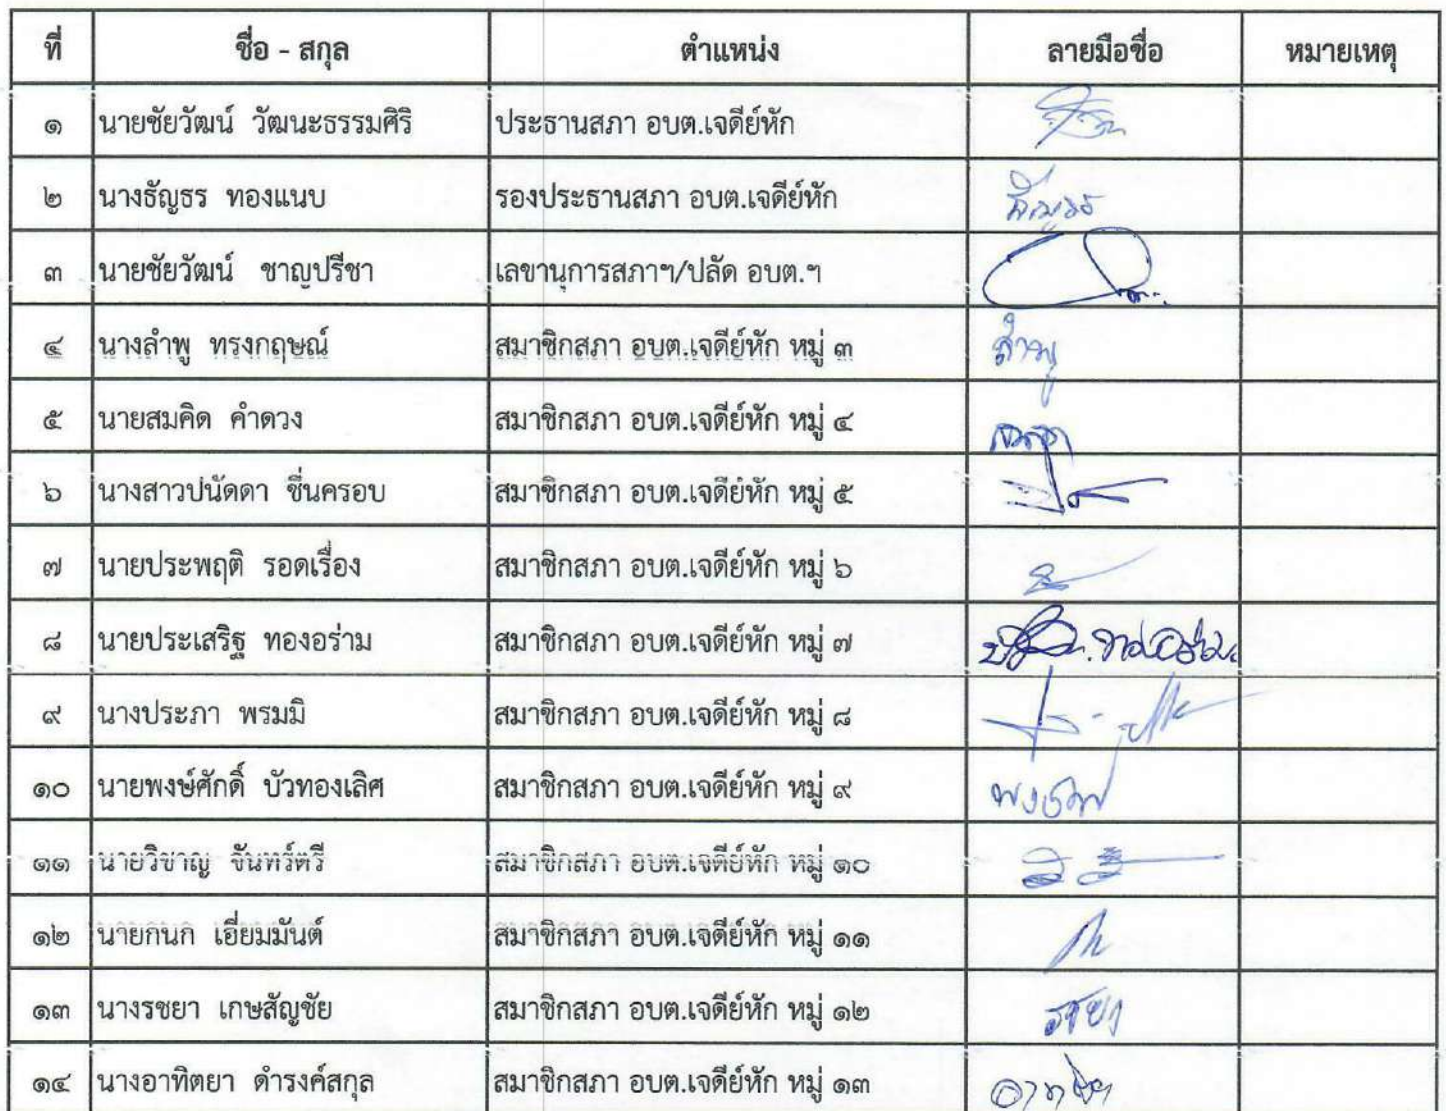 ที่ ชื่อ - สกุล ตำแหน่ง ลายมือชื่อ หมายเหตุ
๑ นายชัยวัฒน์ วัฒนะธรรมศิริ ประธานสภา อบต.เจดีย์หัก
๒ นางธัญธร ทองแนบ รองประธานสภา อบต.เจดีย์หัก ธัญธร
๓ นายชัยวัฒน์ ชาญปรีชา เลขานุการสภาฯ/ปลัด อบต.ฯ
๔ นางลำพู ทรงกฤษณ์ สมาชิกสภา อบต.เจดีย์หัก หมู่ ๓ ลำพู
๕ นายสมคิด คำดวง สมาชิกสภา อบต.เจดีย์หัก หมู่ ๔
๖ นางสาวปนัดดา ชื่นครอบ สมาชิกสภา อบต.เจดีย์หัก หมู่ ๕
๗ นายประพฤติ รอดเรื่อง สมาชิกสภา อบต.เจดีย์หัก หมู่ ๖
๘ นายประเสริฐ ทองอร่าม สมาชิกสภา อบต.เจดีย์หัก หมู่ ๗
๙ นางประภา พรมมิ สมาชิกสภา อบต.เจดีย์หัก หมู่ ๘
๑๐ นายพงษ์ศักดิ์ บัวทองเลิศ สมาชิกสภา อบต.เจดีย์หัก หมู่ ๙
๑๑ นายวิชาญ จันทร์ตรี สมาชิกสภา อบต.เจดีย์หัก หมู่ ๑๐
๑๒ นายกนก เอี่ยมมันต์ สมาชิกสภา อบต.เจดีย์หัก หมู่ ๑๑
๑๓ นางรชยา เกษสัญชัย สมาชิกสภา อบต.เจดีย์หัก หมู่ ๑๒ รชยา
๑๔ นางอาทิตยา ดำรงค์สกุล สมาชิกสภา อบต.เจดีย์หัก หมู่ ๑๓